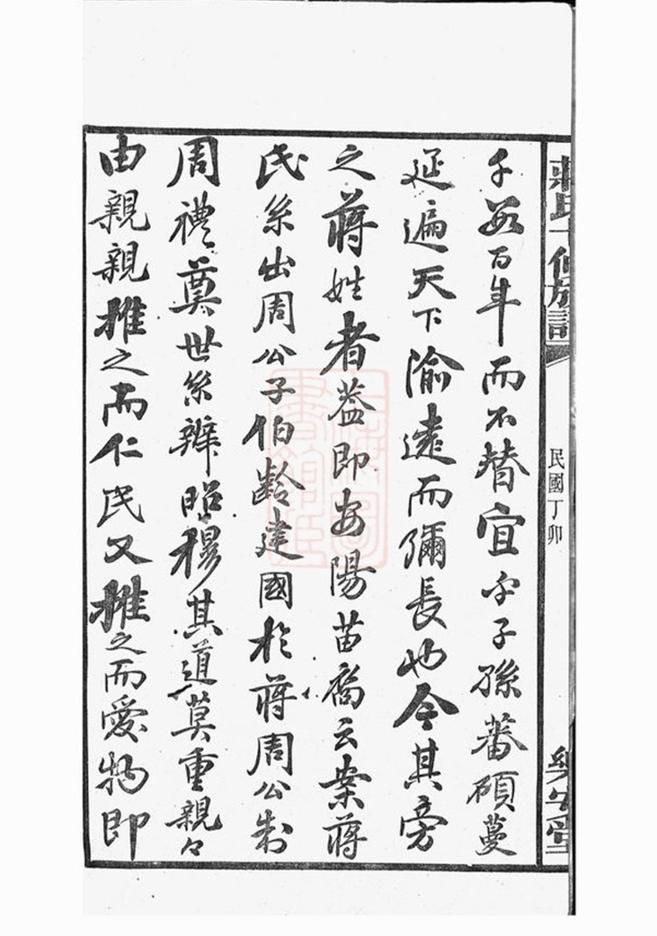 千數百年而不替宜乎子孫蕃碩蔓
延遍天下渝遠而彌長也今其旁
之蔣姓者蓋即安陽苗裔云案蔣
氏系出周公子伯齡建國於蔣周公制
周禮奠世系辨昭穆其道莫重親々
由親親推之而仁民又推之而愛物即
民國丁卯